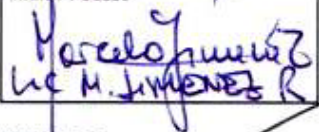 Marcelo Jimenez
Lic M. JIMENEZ R